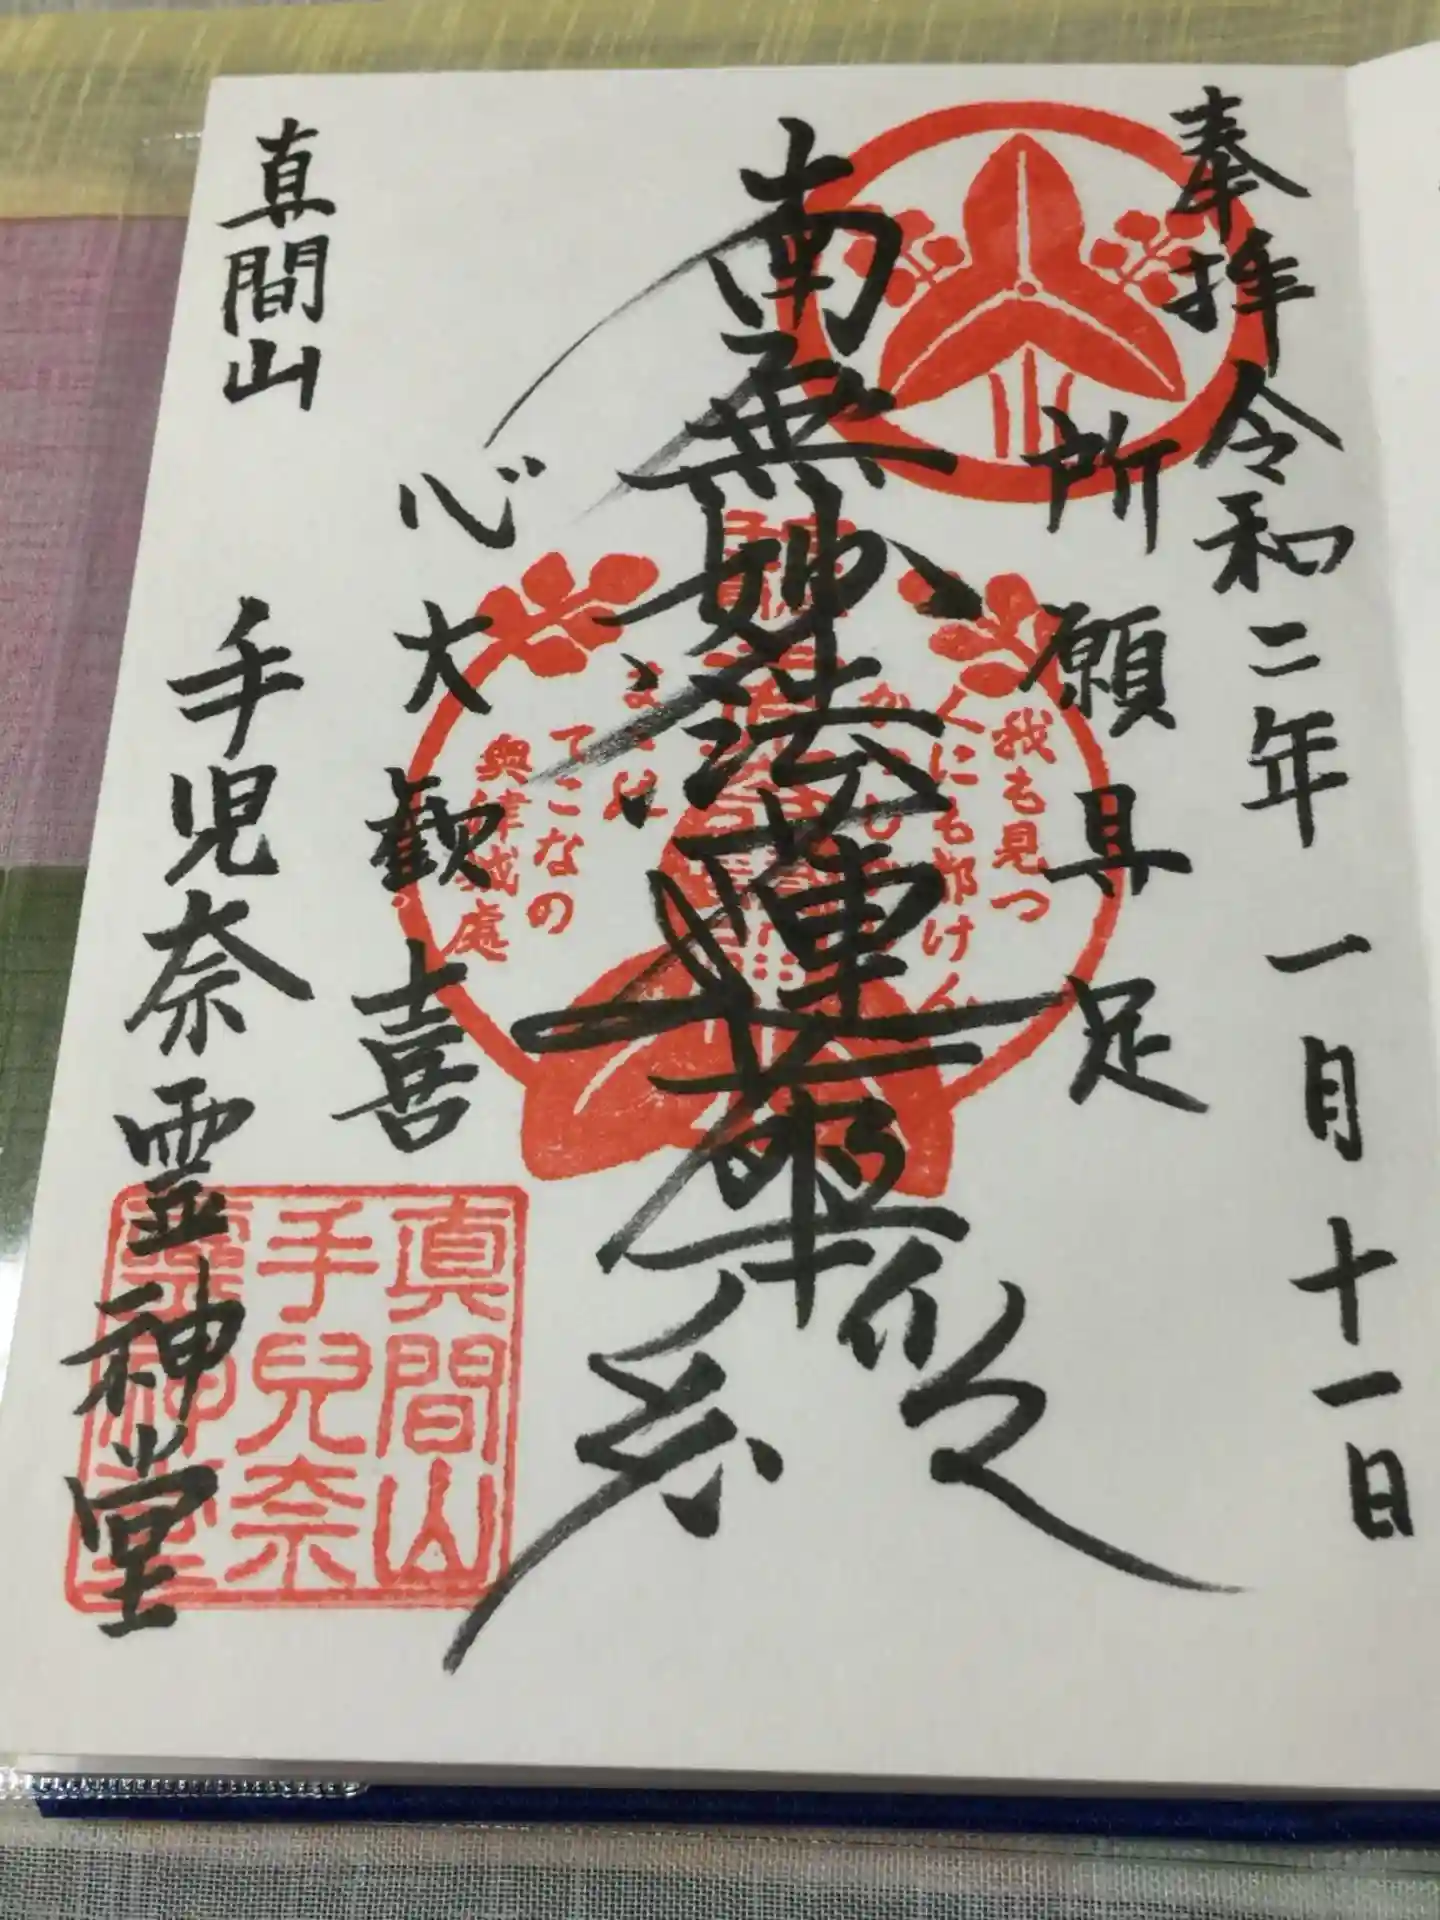 奉拝 令和二年 一月十一日
所願具足
南無妙法蓮華経
心大歓喜
真間山 手児奈霊神堂
我も見つ
人にも告げん
かつし
てこなの
奥津城處
真間山
手兒奈
靈神堂